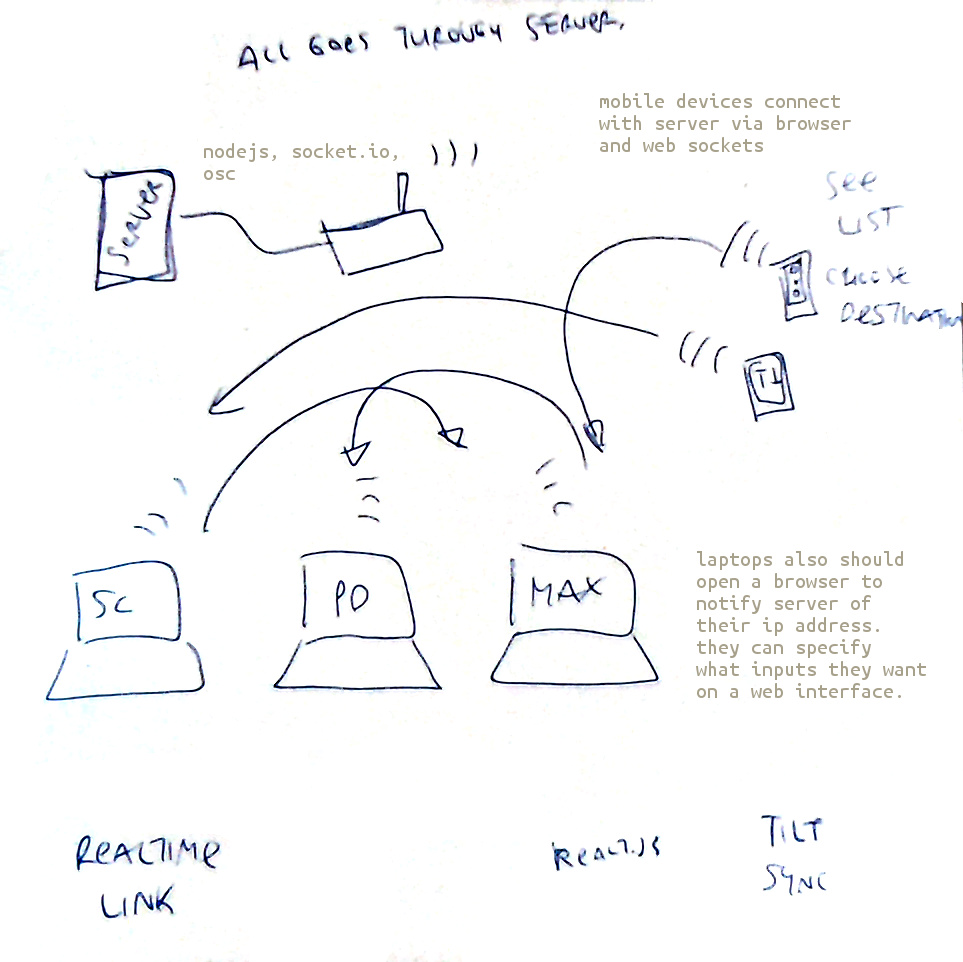 ALL GOES THROUGH SERVER.
mobile devices connect
with server via browser
and web sockets
nodejs, socket.io,
osc
SERVER
SEE
LIST
CHOOSE
DESTINATION
T1
SC
PD
MAX
laptops also should
open a browser to
notify server of
their ip address.
they can specify
what inputs they want
on a web interface.
REALTIME
LINK
REALT.JS
TILT
SYNC